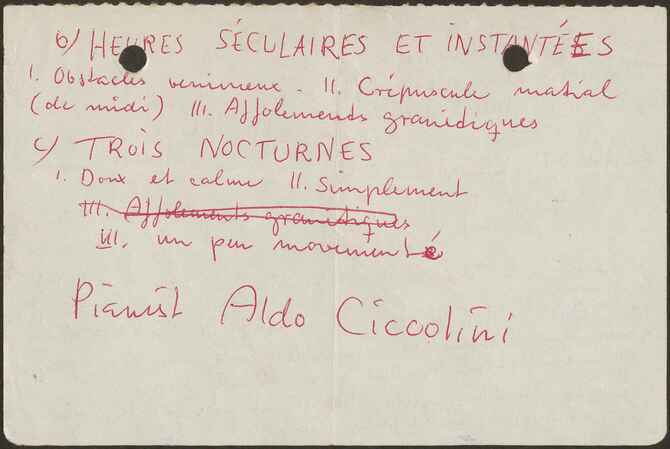 b) HEURES SÉCULAIRES ET INSTANTÉES
I. Obstacles venimeux. II. Crépuscule matial
(de midi) III. Affolements granidiques
c) TROIS NOCTURNES
I. Doux et calme II. Simplement
III. Affolements granitiques
III, un peu movementé
Pianist Aldo Ciccolini